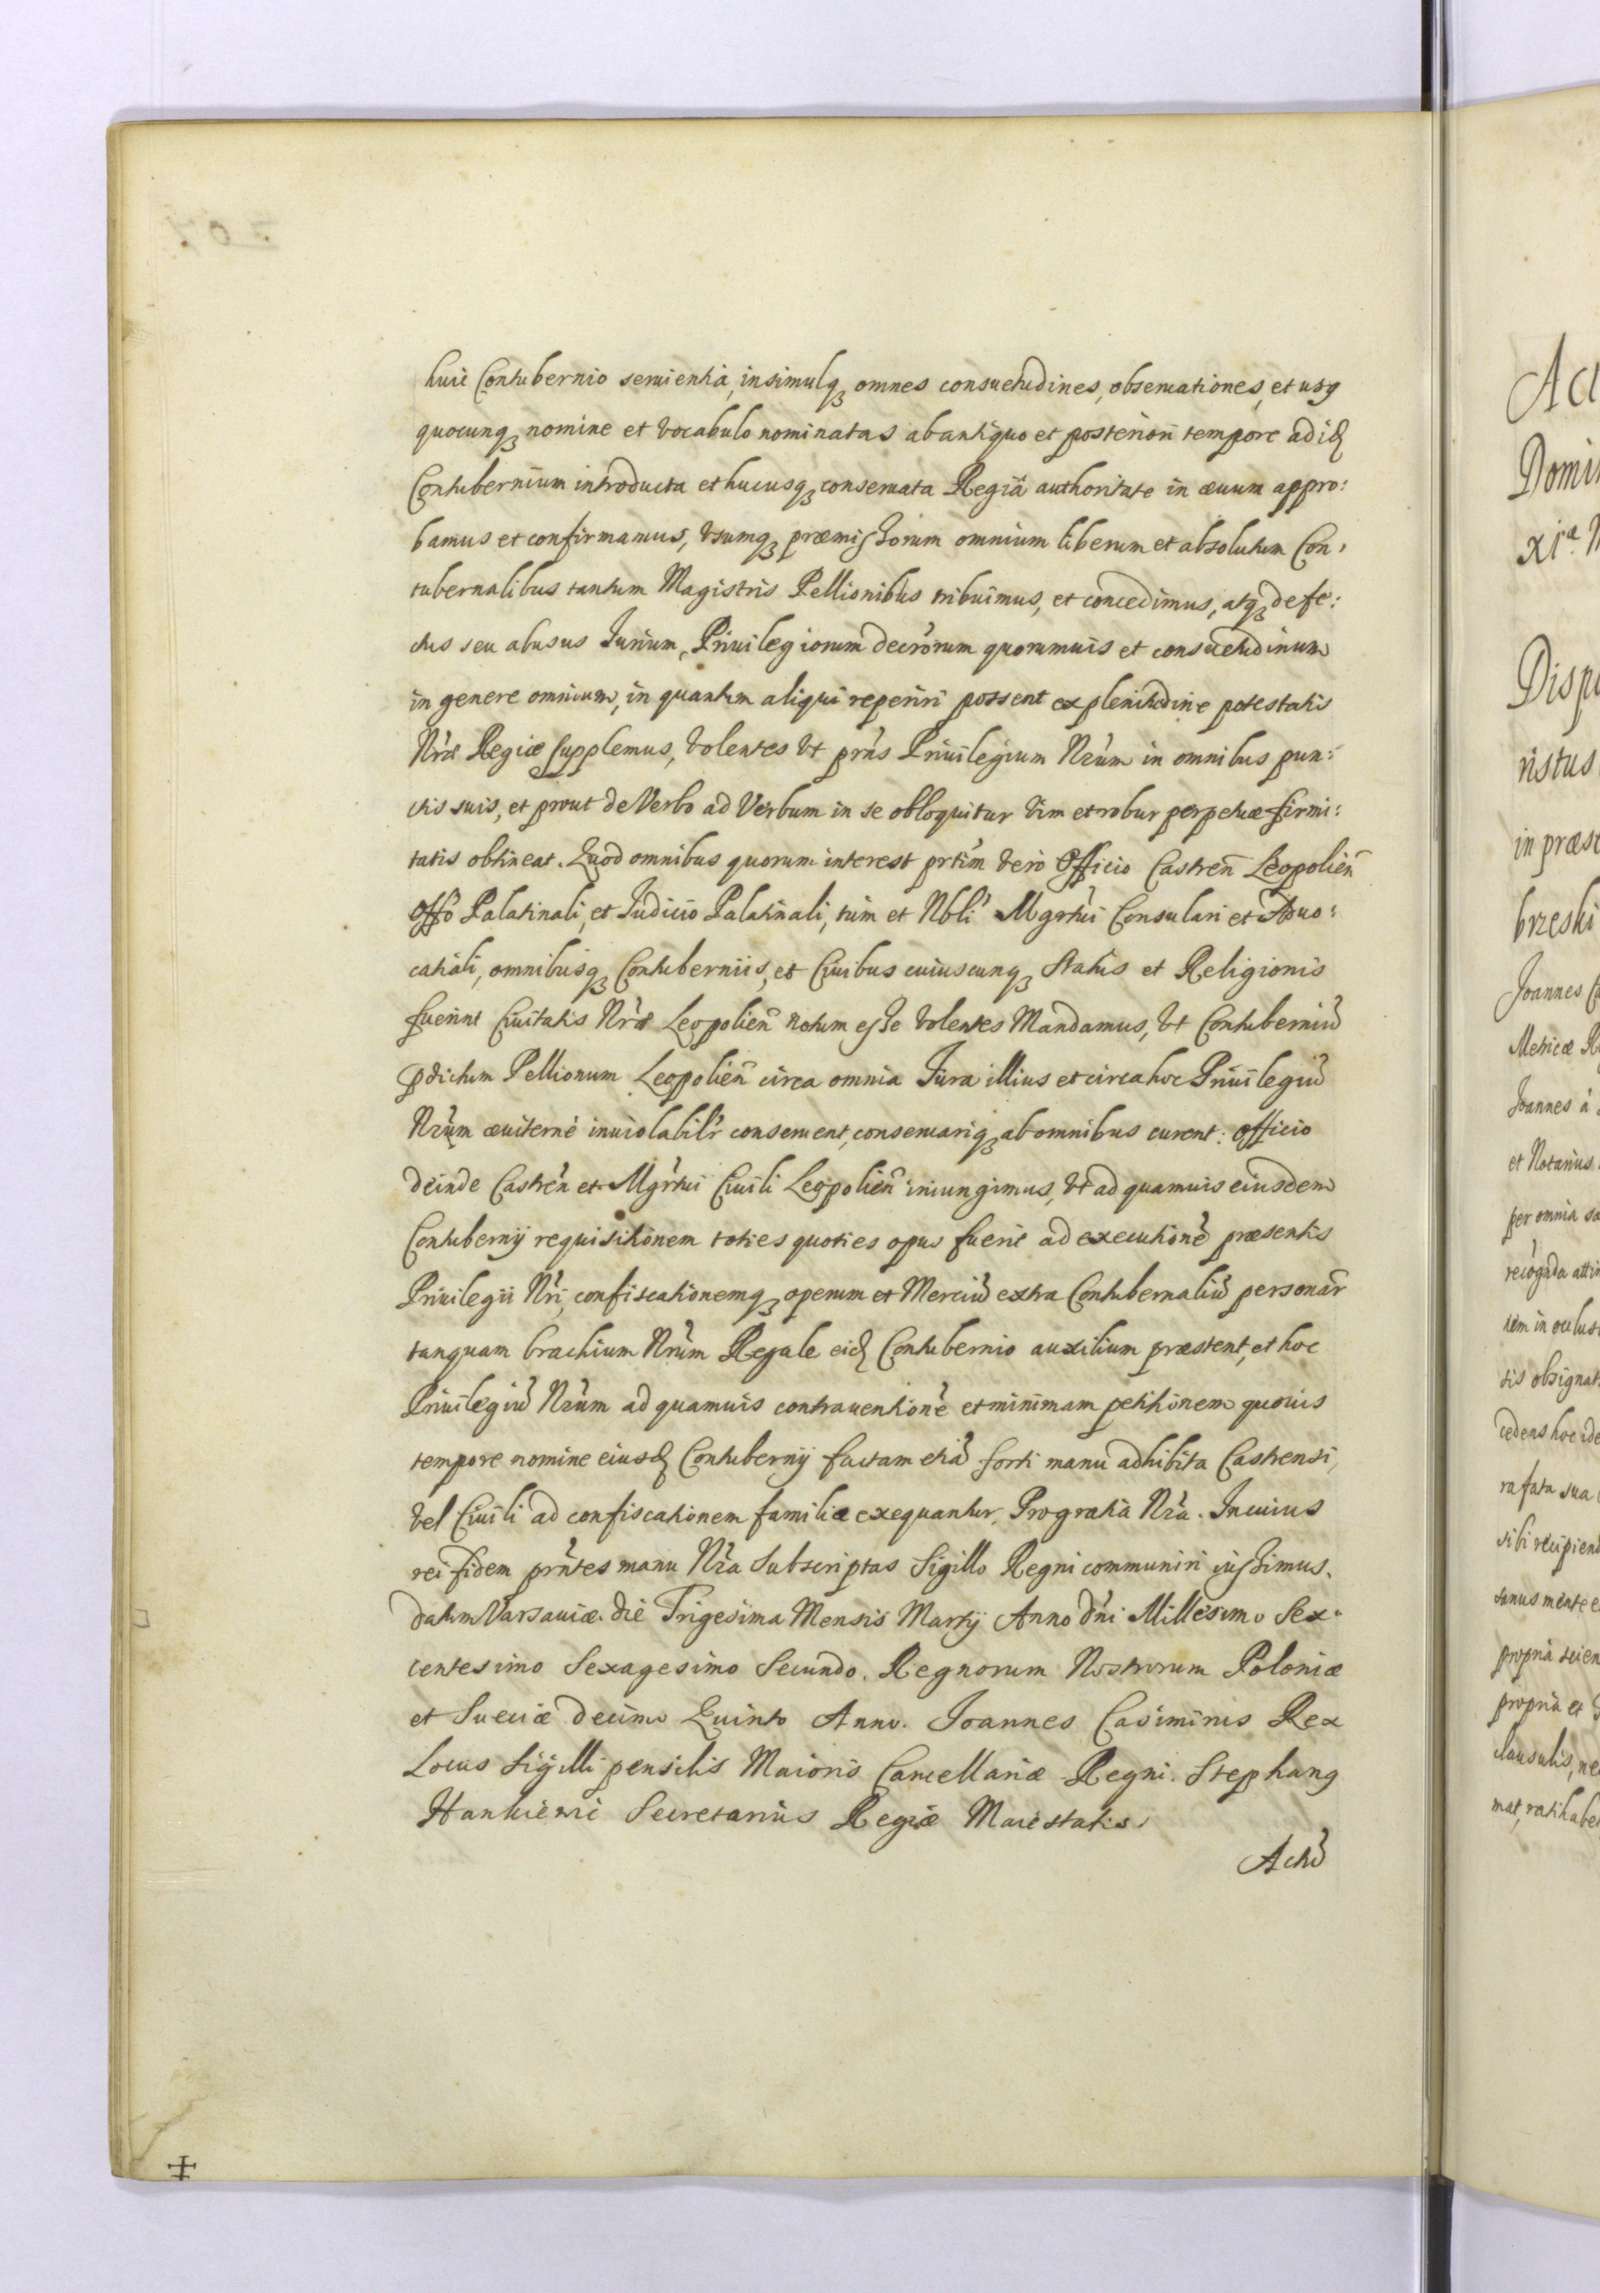 huic Contubernio seruientia, insimulq₃ omnes consuetudines, obseruationes, et usq
quocunq₃ nomine et vocabulo nominatas ab antiquo et posteriori tempore ad id
Contubernium introducta et hucusq₃ conseruata Regiâ authoritate in æuum appro:
bamus et confirmamus, vsumq₃ præmissorum omnium liberum et absolutum Con,
tubernalibus tantum Magistris Pellionibus tribuimus, et concedimus, atq₃ defe:
ctus seu abusus Jurium, Priuilegiorum decrõrum quorumuis et consuetudinum
in genere omnium, in quantum aliqui reperiri possent ex plenitudine potestatis
Nrã Regiæ supplemus, volentes vt prñs Priuilegium Nrũm in omnibus pun:
ctis suis, et prout de Verbo ad Verbum in se obloquitur vim et robur perpetuæ firmi:
tatis obtineat. Quod omnibus quorum interest prtĩm vero Officio Castreñ Leopolieñ
Offõ Palatinali, et Judicio Palatinali, tum et Nbli Mgrtũi Consulari et Aduo:
catiali, omnibusq₃ Contuberniis, et Ciuibus cuiuscunq₃ Status et Religionis
fuerint Ciuitatis Nrã Leopolieñ notum esse volentes Mandamus, vt Contuberniũ
pdictum Pellionum Leopolieñ circa omnia Jura illius et circa hoc Priuilegiũ
Nrũm æuiternè inuiolabilr̃ conseruent, conseruariq₃ ab omnibus curent: Officio
deinde Castreñ et Mgrtũi Ciuili Leopolieñ iniungimus, vt ad quamuis eiusdem
Contubernij requisitionem toties quoties opus fuerit ad executionẽ præsentis
Priuilegii Nrĩ, confiscationemq₃ operum et Merciũ extra Contubernaliũ personar̃
tanquam brachium Nrũm Regale eid Contubernio auxilium præstent, et hoc
Priuilegiũ Nrũm ad quamuis contrauentionẽ et minimam petitionem quouis
tempore nomine eiusd Contubernij factam etiã forti manu adhibita Castrensi,
vel Ciuili ad confiscationem familiæ exequantur, Pro gratia Nrã. In cuius
rei fidem prñtes manu Nrã Subscriptas Sigillo Regni communiri iussimus.
datum Varsauiæ die Trigesima Mensis Martij Anno dñi Millesimo Sex:
centesimo Sexagesimo Secundo. Regnorum Nostrorum Poloniæ
et Sueciæ decimo Quinto Anno. Joannes Casimirus Rex
Locus Sigilli pensilis Maioris Cancellariæ Regni. Stephanq
Hankiewic Secretarius Regiæ Maiestatis.
Actũ
Act
Domin
xiã
Dispo
ristus
in præs
brzeski
Joannes
Metricæ
Joannes à
et Notarius
per omnia
recognda
tem in
tis obsignat
cedens hoc ide
ra fata sua
sibi recipiend
sanus mente e
propria scien
propria et
clausulis, ne
mat, ratihabe